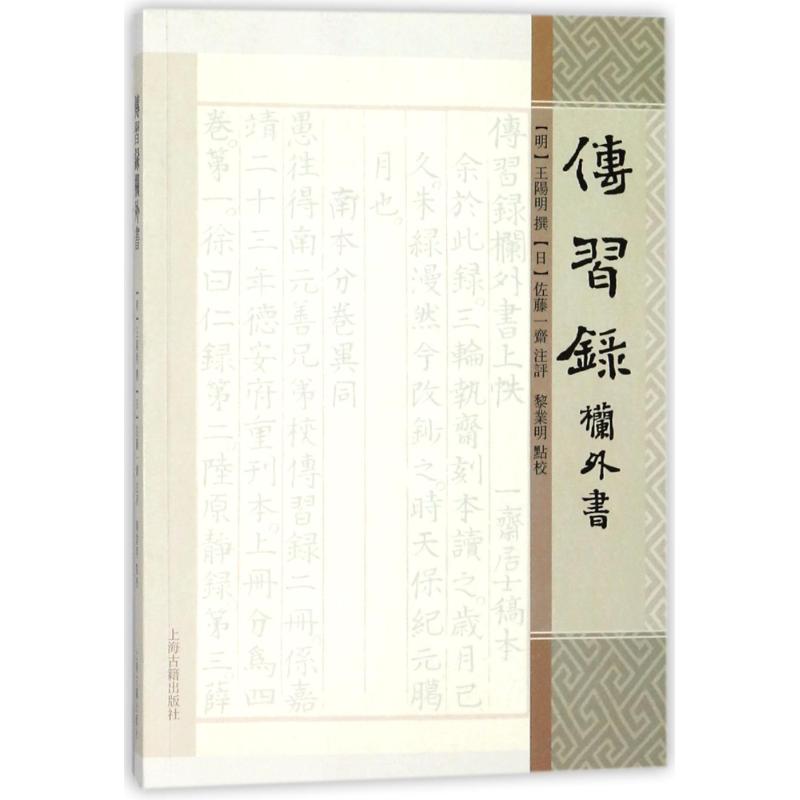 傳習錄
欄外書
【明】王陽明 撰 【日】佐藤一齋 注評 黎業明 點校
傳習錄欄外書上帙 一齋居士稿本
余於此錄。三輪執齋刻本讀之。歲月已
久。朱綠漫然。今改鈔之。時天保紀元臈
月也。
南本分卷異同
愚往得南元善兄弟校傳習錄二冊。係嘉
靖二十三年德安府重刊本。上冊分爲四
卷。第一。徐曰仁錄。第二。陸原靜錄。第三。薛
上海古籍出版社
傳習錄欄外書